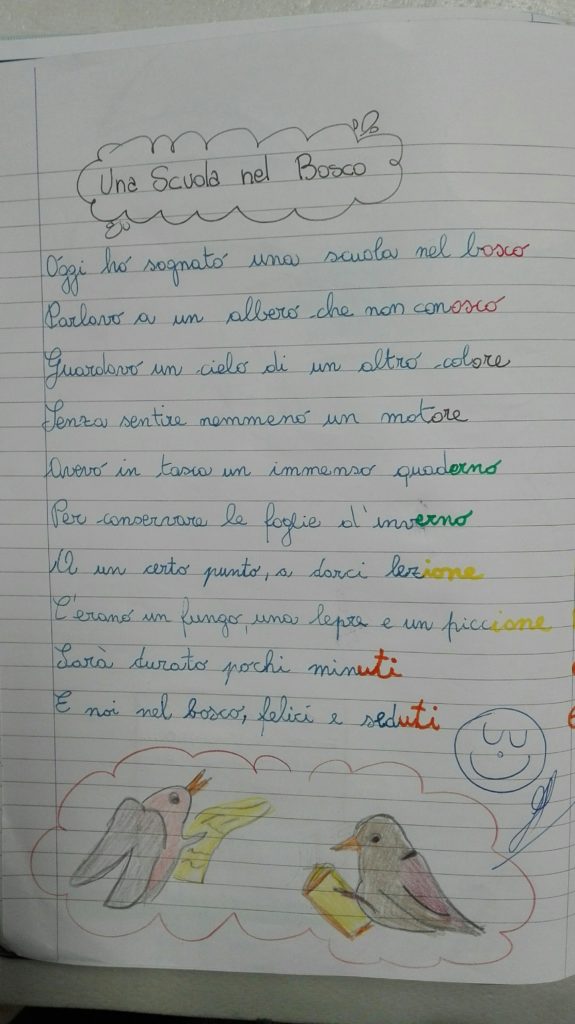 Una Scuola nel Bosco
Oggi ho sognato una scuola nel bosco
Parlavo a un albero che non conosco
Guardavo un cielo di un altro colore
Senza sentire nemmeno un motore
Avevo in tasca un immenso quaderno
Per conservare le foglie d'inverno
A un certo punto, a darci lezione
C'erano un fungo, una lepre e un piccione
Sarà durato pochi minuti
E noi nel bosco, felici e seduti